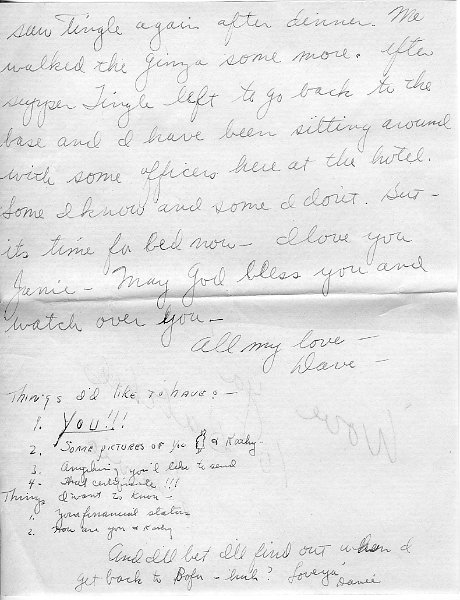 saw Tingle again after dinner. We
walked the Ginza some more. After
supper Tingle left to go back to the
base and I have been sitting around
with some officers here at the hotel.
Some I know and some I don't. But -
its time for bed now - I love you
Janie - May God bless you and
watch over you -
All my love -
Dave -
Things I'd like to have: -
1. You!!!
2. Some pictures of you {} & Kathy.
3. Anything you'd like to send
4. That certificate !!!
Things I want to know -
1. Your financial status
2. How are you & Kathy
And I'll bet I'll find out when I
get back to Bofu - huh? Loveya'